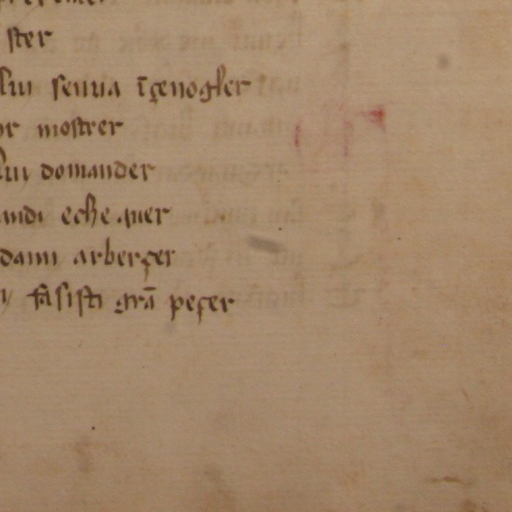 ster
lui senua īçenogler
or mostrer
lui domander
andi eche quer
dann arberçer
fasisti grā peçer